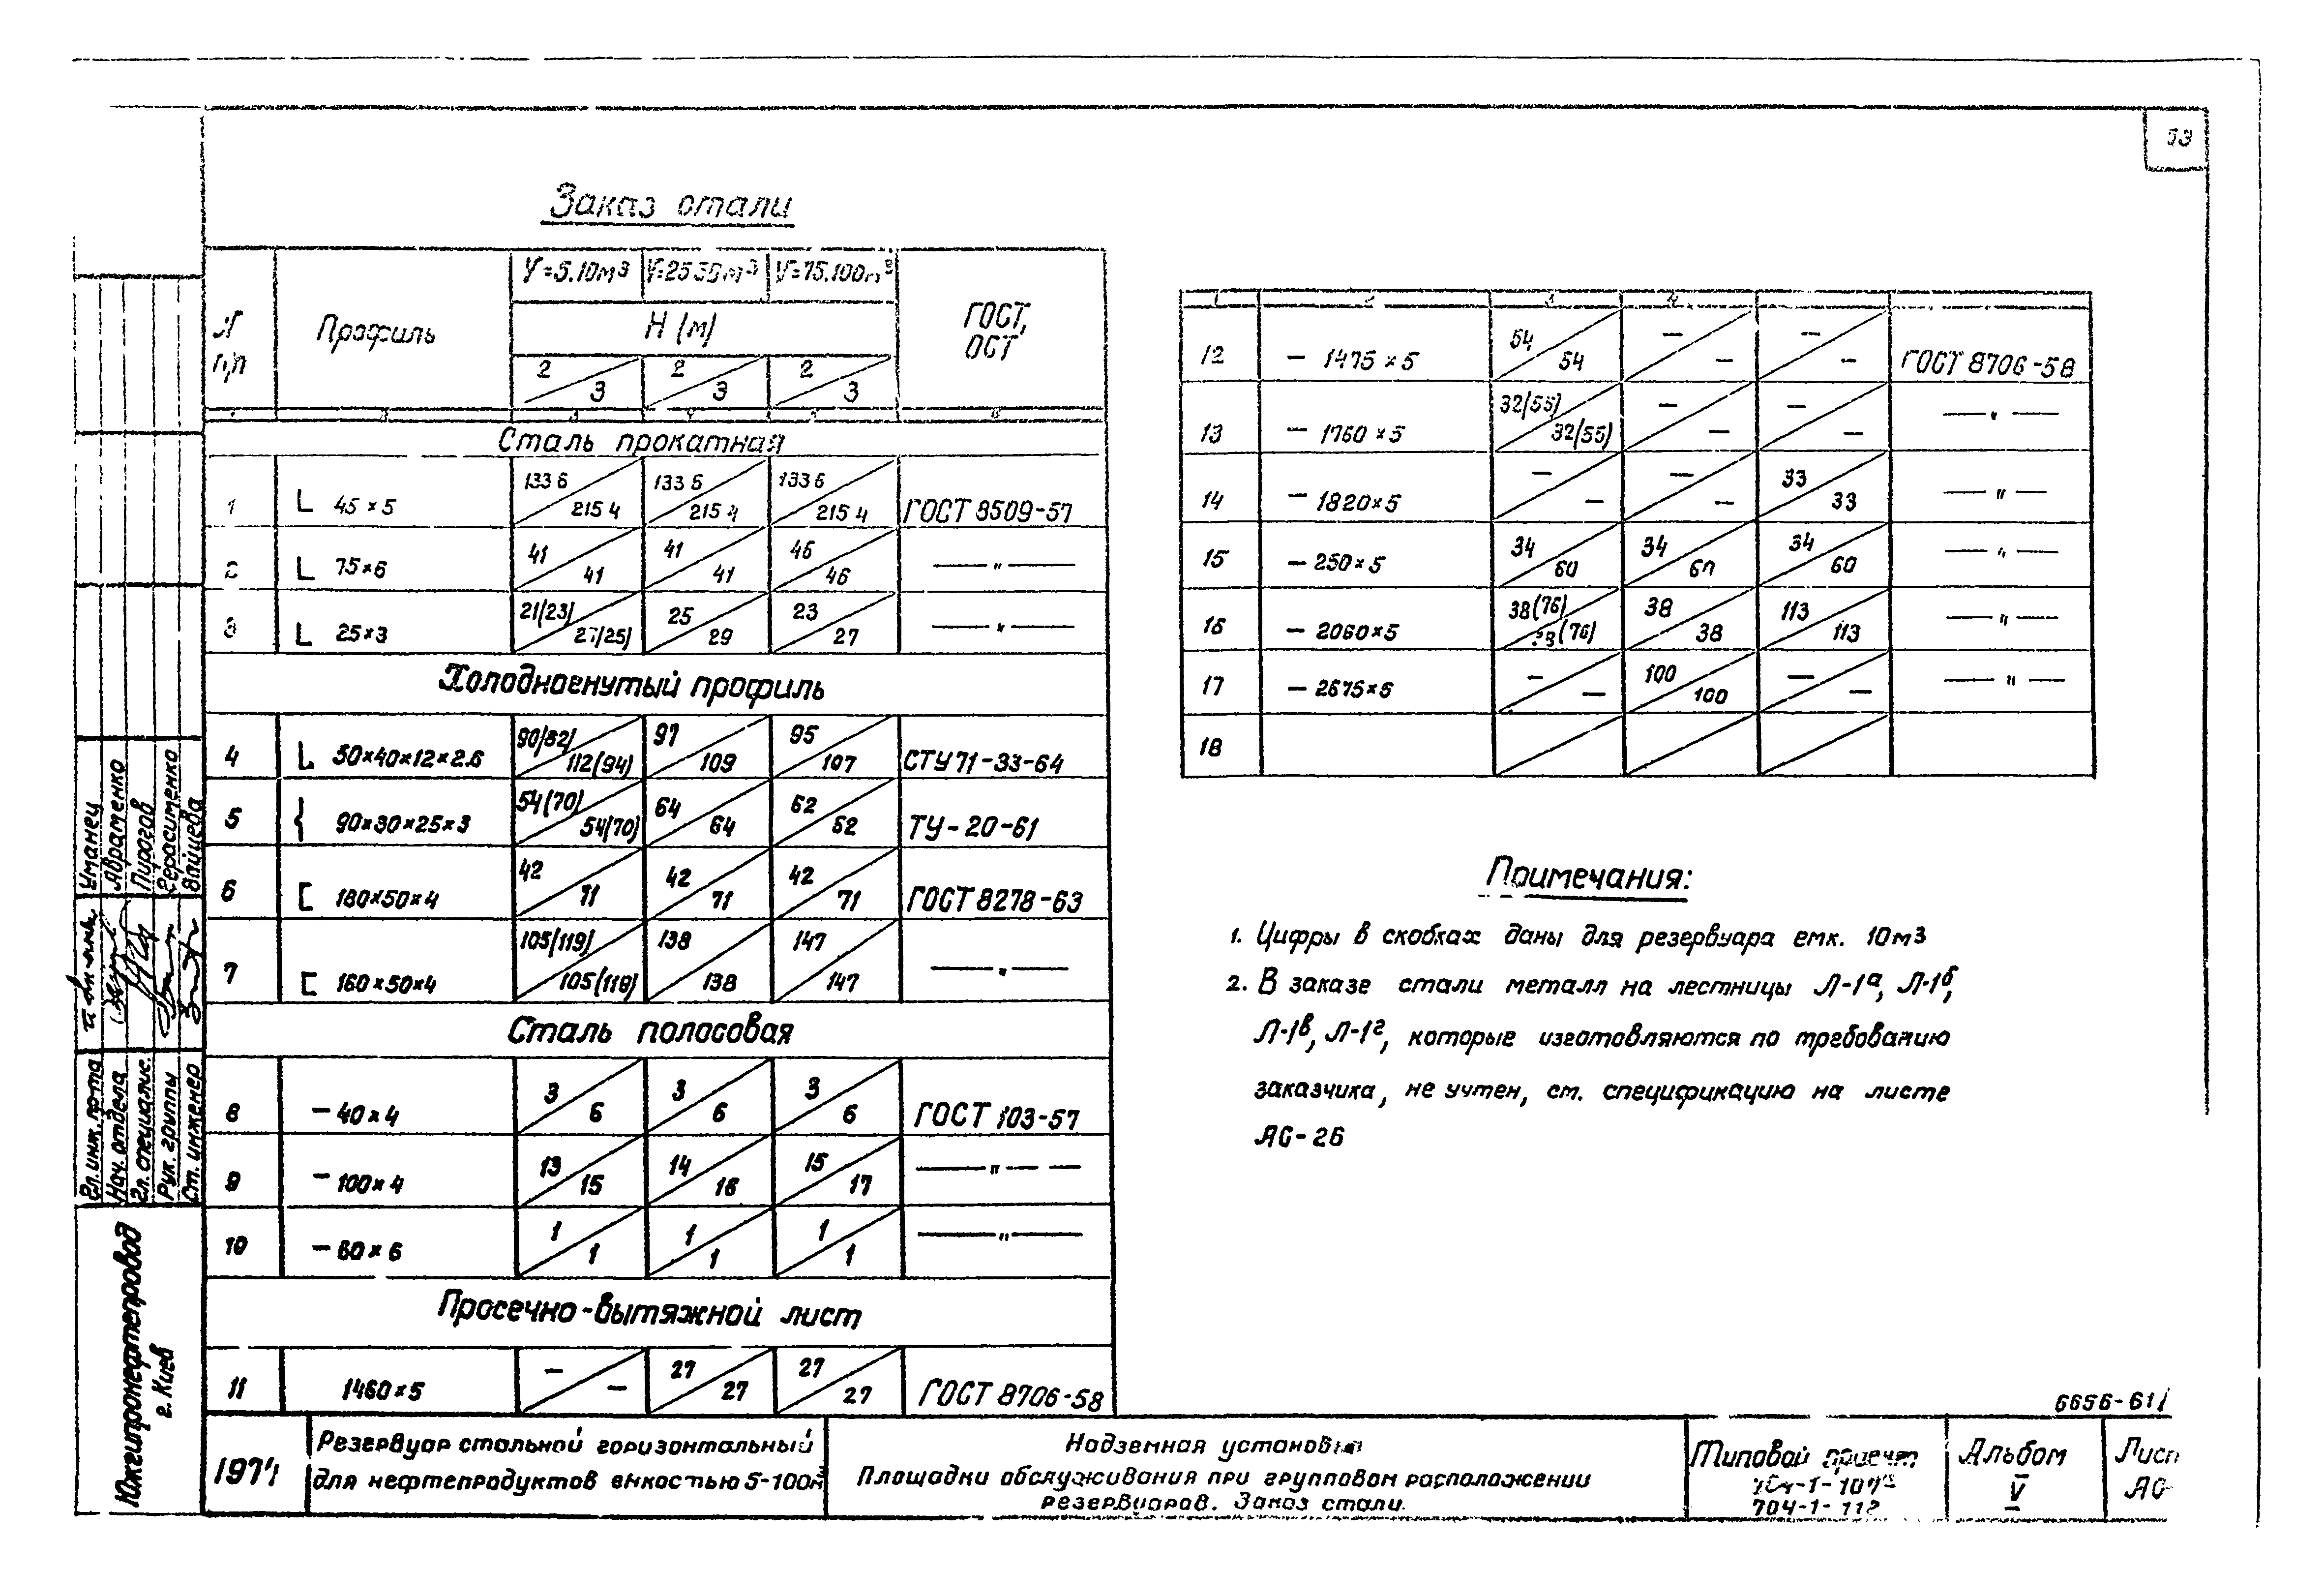 53
Заказ стали
N п/п | Профиль | V=5.10м³ | V=25.50м³ | V=75.100м³ | ГОСТ, ОСТ
H (м)
2/3 | 2/3 | 2/3
1 | 2 | 3 | 4 | 5 | 6
Сталь прокатная
1 | L 45×5 | 133 6/215 4 | 133 6/215 4 | 133 6/215 4 | ГОСТ 8509-57
2 | L 75×6 | 41/41 | 41/41 | 46/46 | —"—
3 | L 25×3 | 21(23)/27(25) | 25/29 | 23/27 | —"—
Холодногнутый профиль
4 | 50×40×12×2.6 | 90(82)/112(94) | 97/109 | 95/107 | СТУ 71-33-64
5 | 90×30×25×3 | 54(70)/54(70) | 64/64 | 62/62 | ТУ-20-61
6 | [ 180×50×4 | 42/71 | 42/71 | 42/71 | ГОСТ 8278-63
7 | [ 160×50×4 | 105(119)/105(119) | 138/138 | 147/147 | —"—
Сталь полосовая
8 | −40×4 | 3/6 | 3/6 | 3/6 | ГОСТ 103-57
9 | −100×4 | 13/15 | 14/16 | 15/17 | —"— —
10 | −60×6 | 1/1 | 1/1 | 1/1 | —"—
Просечно-вытяжной лист
11 | 1460×5 | −/− | 27/27 | 27/27 | ГОСТ 8706-58
1 | 2 | 3 | 4
12 | − 1475×5 | 54/54 | −/− | −/− | ГОСТ 8706-58
13 | − 1760×5 | 32(55)/32(55) | −/− | −/− | —"—
14 | − 1820×5 | −/− | −/− | 33/33 | —"—
15 | − 250×5 | 34/60 | 34/60 | 34/60 | —"—
16 | − 2060×5 | 38(76)/38(76) | 38/38 | 113/113 | —"—
17 | − 2675×5 | −/− | 100/100 | −/− | —"—
18
Примечания:
1. Цифры в скобках даны для резервуара емк. 10м3
2. В заказе стали металл на лестницы Л-1а, Л-1б,
Л-1в, Л-1г, которые изготовляются по требованию
заказчика, не учтен, см. спецификацию на листе
АС-26
Гл. инж. пр-та | Уманец
Нач. отдела | Авраменко
Гл. специалис. | Пирогов
Рук. группы | Герасименко
Ст. инженер
Южгипронефтепровод
г. Киев
6656-61/
1974
Резервуар стальной горизонтальный
для нефтепродуктов емкостью 5-100м³
Надземная установка
Площадки обслуживания при групповом расположении
резервуаров. Заказ стали.
Типовой проект
704-1-112
Альбом
V
Лист
АС-